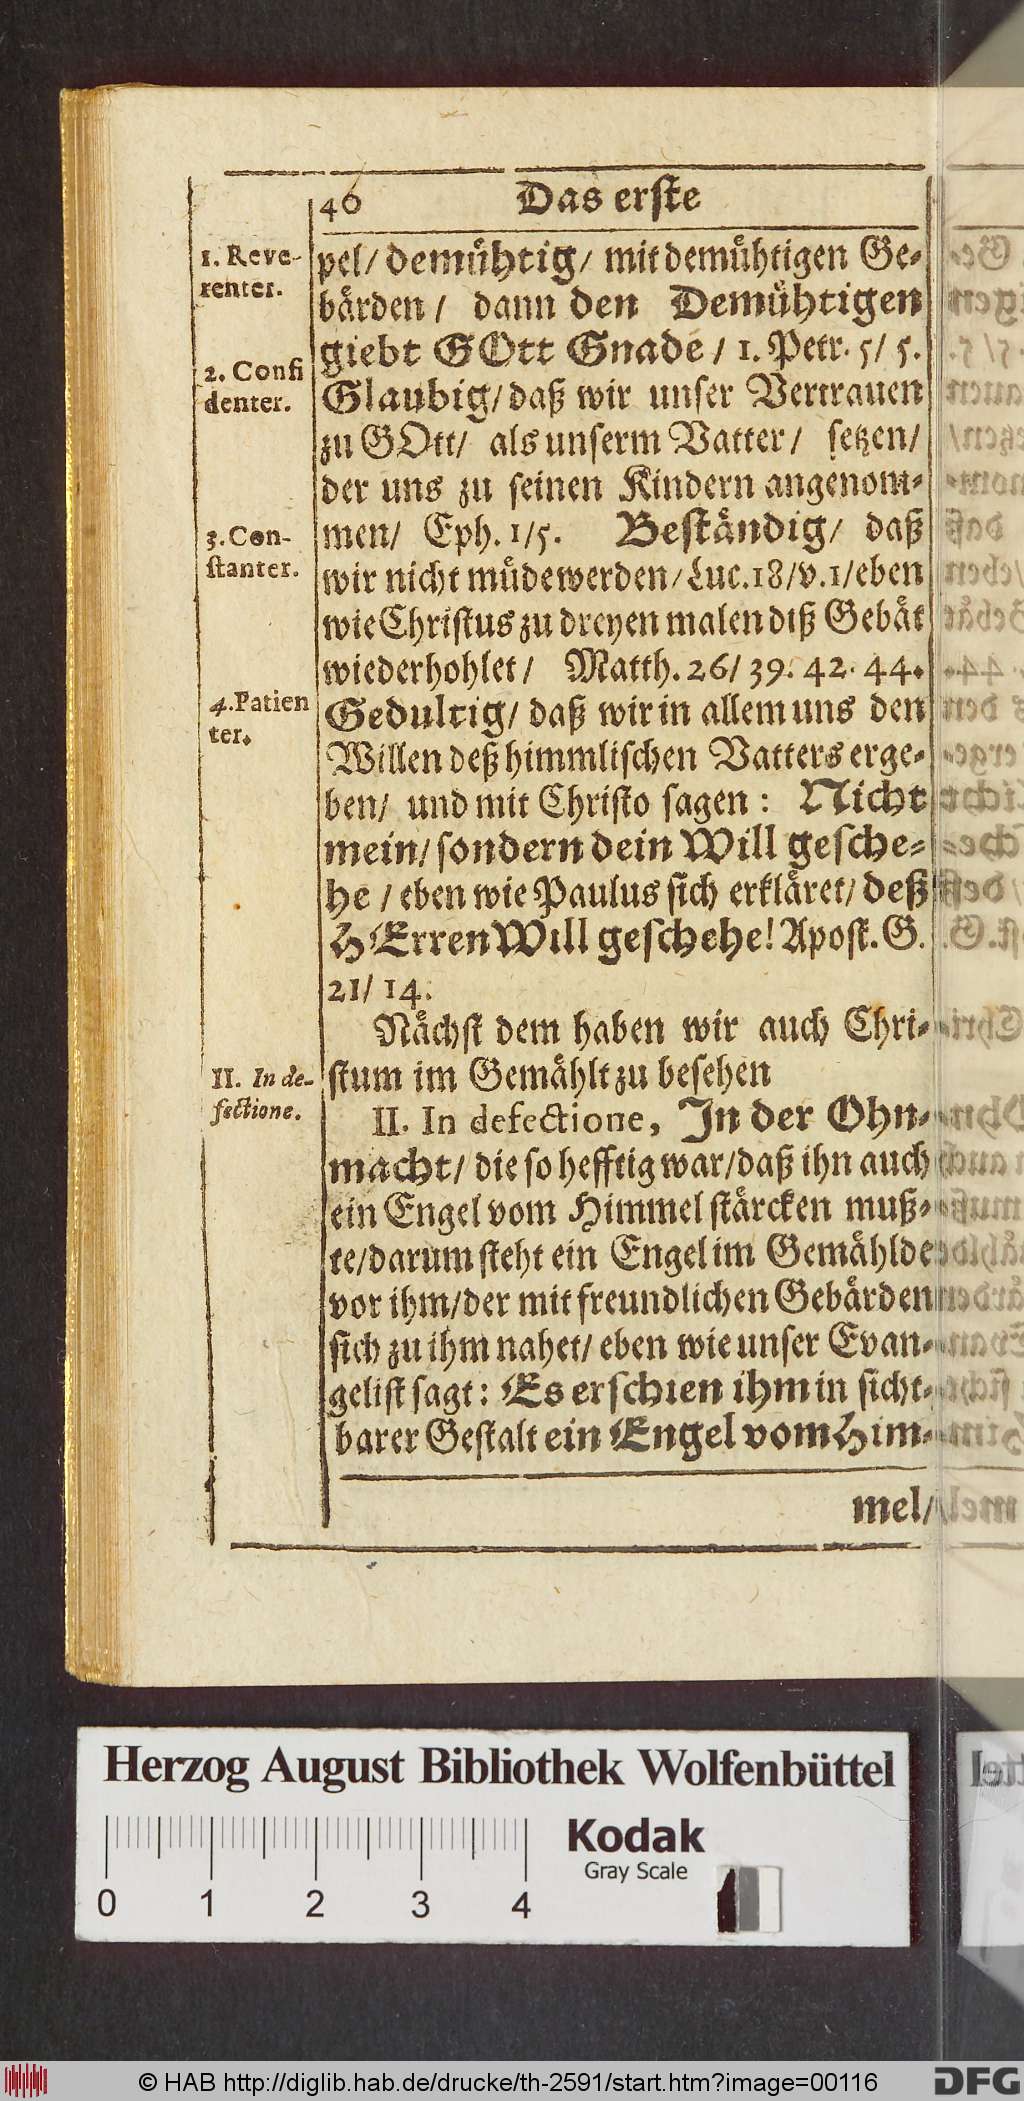 46 Das erste
1. Reve-
renter.
pel/ demühtig/ mit demühtigen Ge-
bärden / dann den Demühtigen
giebt GOtt Gnade / 1. Petr. 5/ 5.
2. Confi
denter.
Glaubig/ daß wir unser Vertrauen
zu GOtt/ als unserm Vatter / setzen/
der uns zu seinen Kindern angenom-
3. Con-
stanter.
men/ Eph. 1/5. Beständig/ daß
wir nicht müde werden/Luc.18/v.1/eben
wie Christus zu dreyen malen diß Gebät
wiederhohlet / Matth. 26/ 39. 42. 44.
4.Patien
ter.
Gedultig/ daß wir in allem uns den
Willen deß himmlischen Vatters erge-
ben/ und mit Christo sagen : Nicht
mein/ sondern dein Will gesche-
he / eben wie Paulus sich erkläret/ deß
HErren Will geschehe! Apost. G.
21/ 14.
Nächst dem haben wir auch Chri-
II. In de-
fectione.
stum im Gemählt zu besehen
II. In defectione, In der Ohn-
macht/ die so hefftig war/daß ihn auch
ein Engel vom Himmel stärcken muß-
te/darum steht ein Engel im Gemählde
vor ihm/der mit freundlichen Gebärden
sich zu ihm nahet/ eben wie unser Evan-
gelist sagt: Es erschien ihm in sicht-
barer Gestalt ein Engel vom Him-
mel/
Herzog August Bibliothek Wolfenbüttel
0 1 2 3 4
Kodak
Gray Scale
© HAB http://diglib.hab.de/drucke/th-2591/start.htm?image=00116
DFG